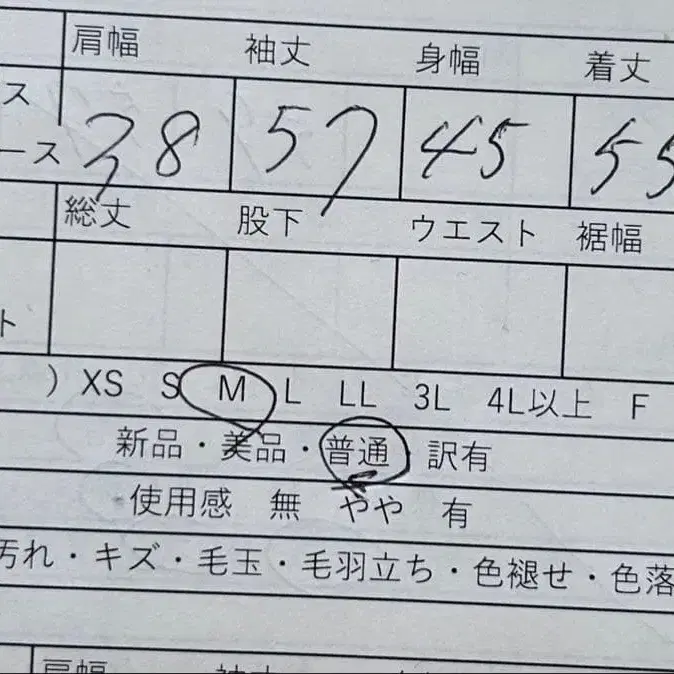 肩幅 袖丈 身幅 着丈
ス
ース 38 57 45 55
総丈 股下 ウエスト 裾幅
ト
) XS S M L LL 3L 4L以上 F
新品・美品・普通 訳有
使用感 無 やや 有
汚れ・キズ・毛玉・毛羽立ち・色褪せ・色落
肩幅 袖丈